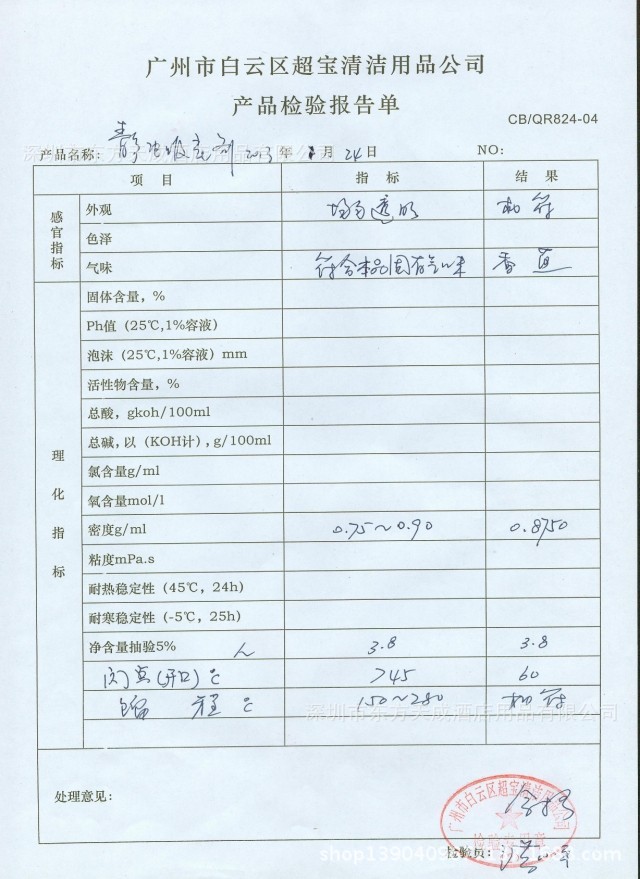 广州市白云区超宝清洁用品公司
产品检验报告单
CB/QR824-04
产品名称: 静电吸尘剂 2013 年 月 24 日 NO:
项 目 指 标 结 果
感官指标
外观 均匀透明 相符
色泽
气味 符合本品固有气味 香蕉
理化指标
固体含量，%
Ph值（25℃,1%容液）
泡沫（25℃,1%容液）mm
活性物含量，%
总酸，gkoh/100ml
总碱，以（KOH计）, g/100ml
氯含量g/ml
氧含量mol/l
密度g/ml 0.75~0.90 0.8750
粘度mPa.s
耐热稳定性（45℃，24h）
耐寒稳定性（-5℃，25h）
净含量抽验5% 3.8 3.8
闪点(开口) ℃ >45 60
馏 程 ℃ 150~280 相符
深圳市东方天成酒店用品有限公司
处理意见:
广州市白云区超宝清洁用品公司
检验专用章
检验员: